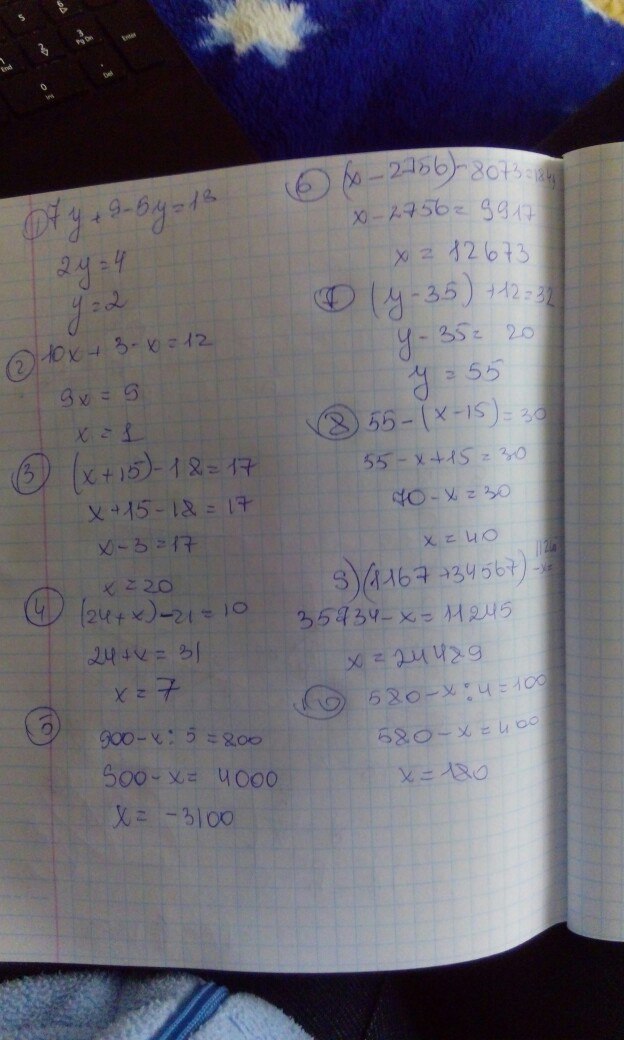 1) 7y + 9 - 5y = 13
2y = 4
y = 2
2) 10x + 3 - x = 12
9x = 9
x = 1
3) (x + 15) - 18 = 17
x + 15 - 18 = 17
x - 3 = 17
x = 20
4) (24 + x) - 21 = 10
24 + x = 31
x = 7
5)
900 - x : 5 = 800
900 - x = 4000
x = -3100
6) (x - 2756) - 8073 =
x - 2756 = 9917
x = 12673
7) (y - 35) + 12 = 32
y - 35 = 20
y = 55
8) 55 - (x - 15) = 30
55 - x + 15 = 30
70 - x = 30
x = 40
9) (1167 + 34567) - x =
35734 - x = 11245
x = 24489
10) 580 - x : 4 = 100
580 - x = 400
x = 180